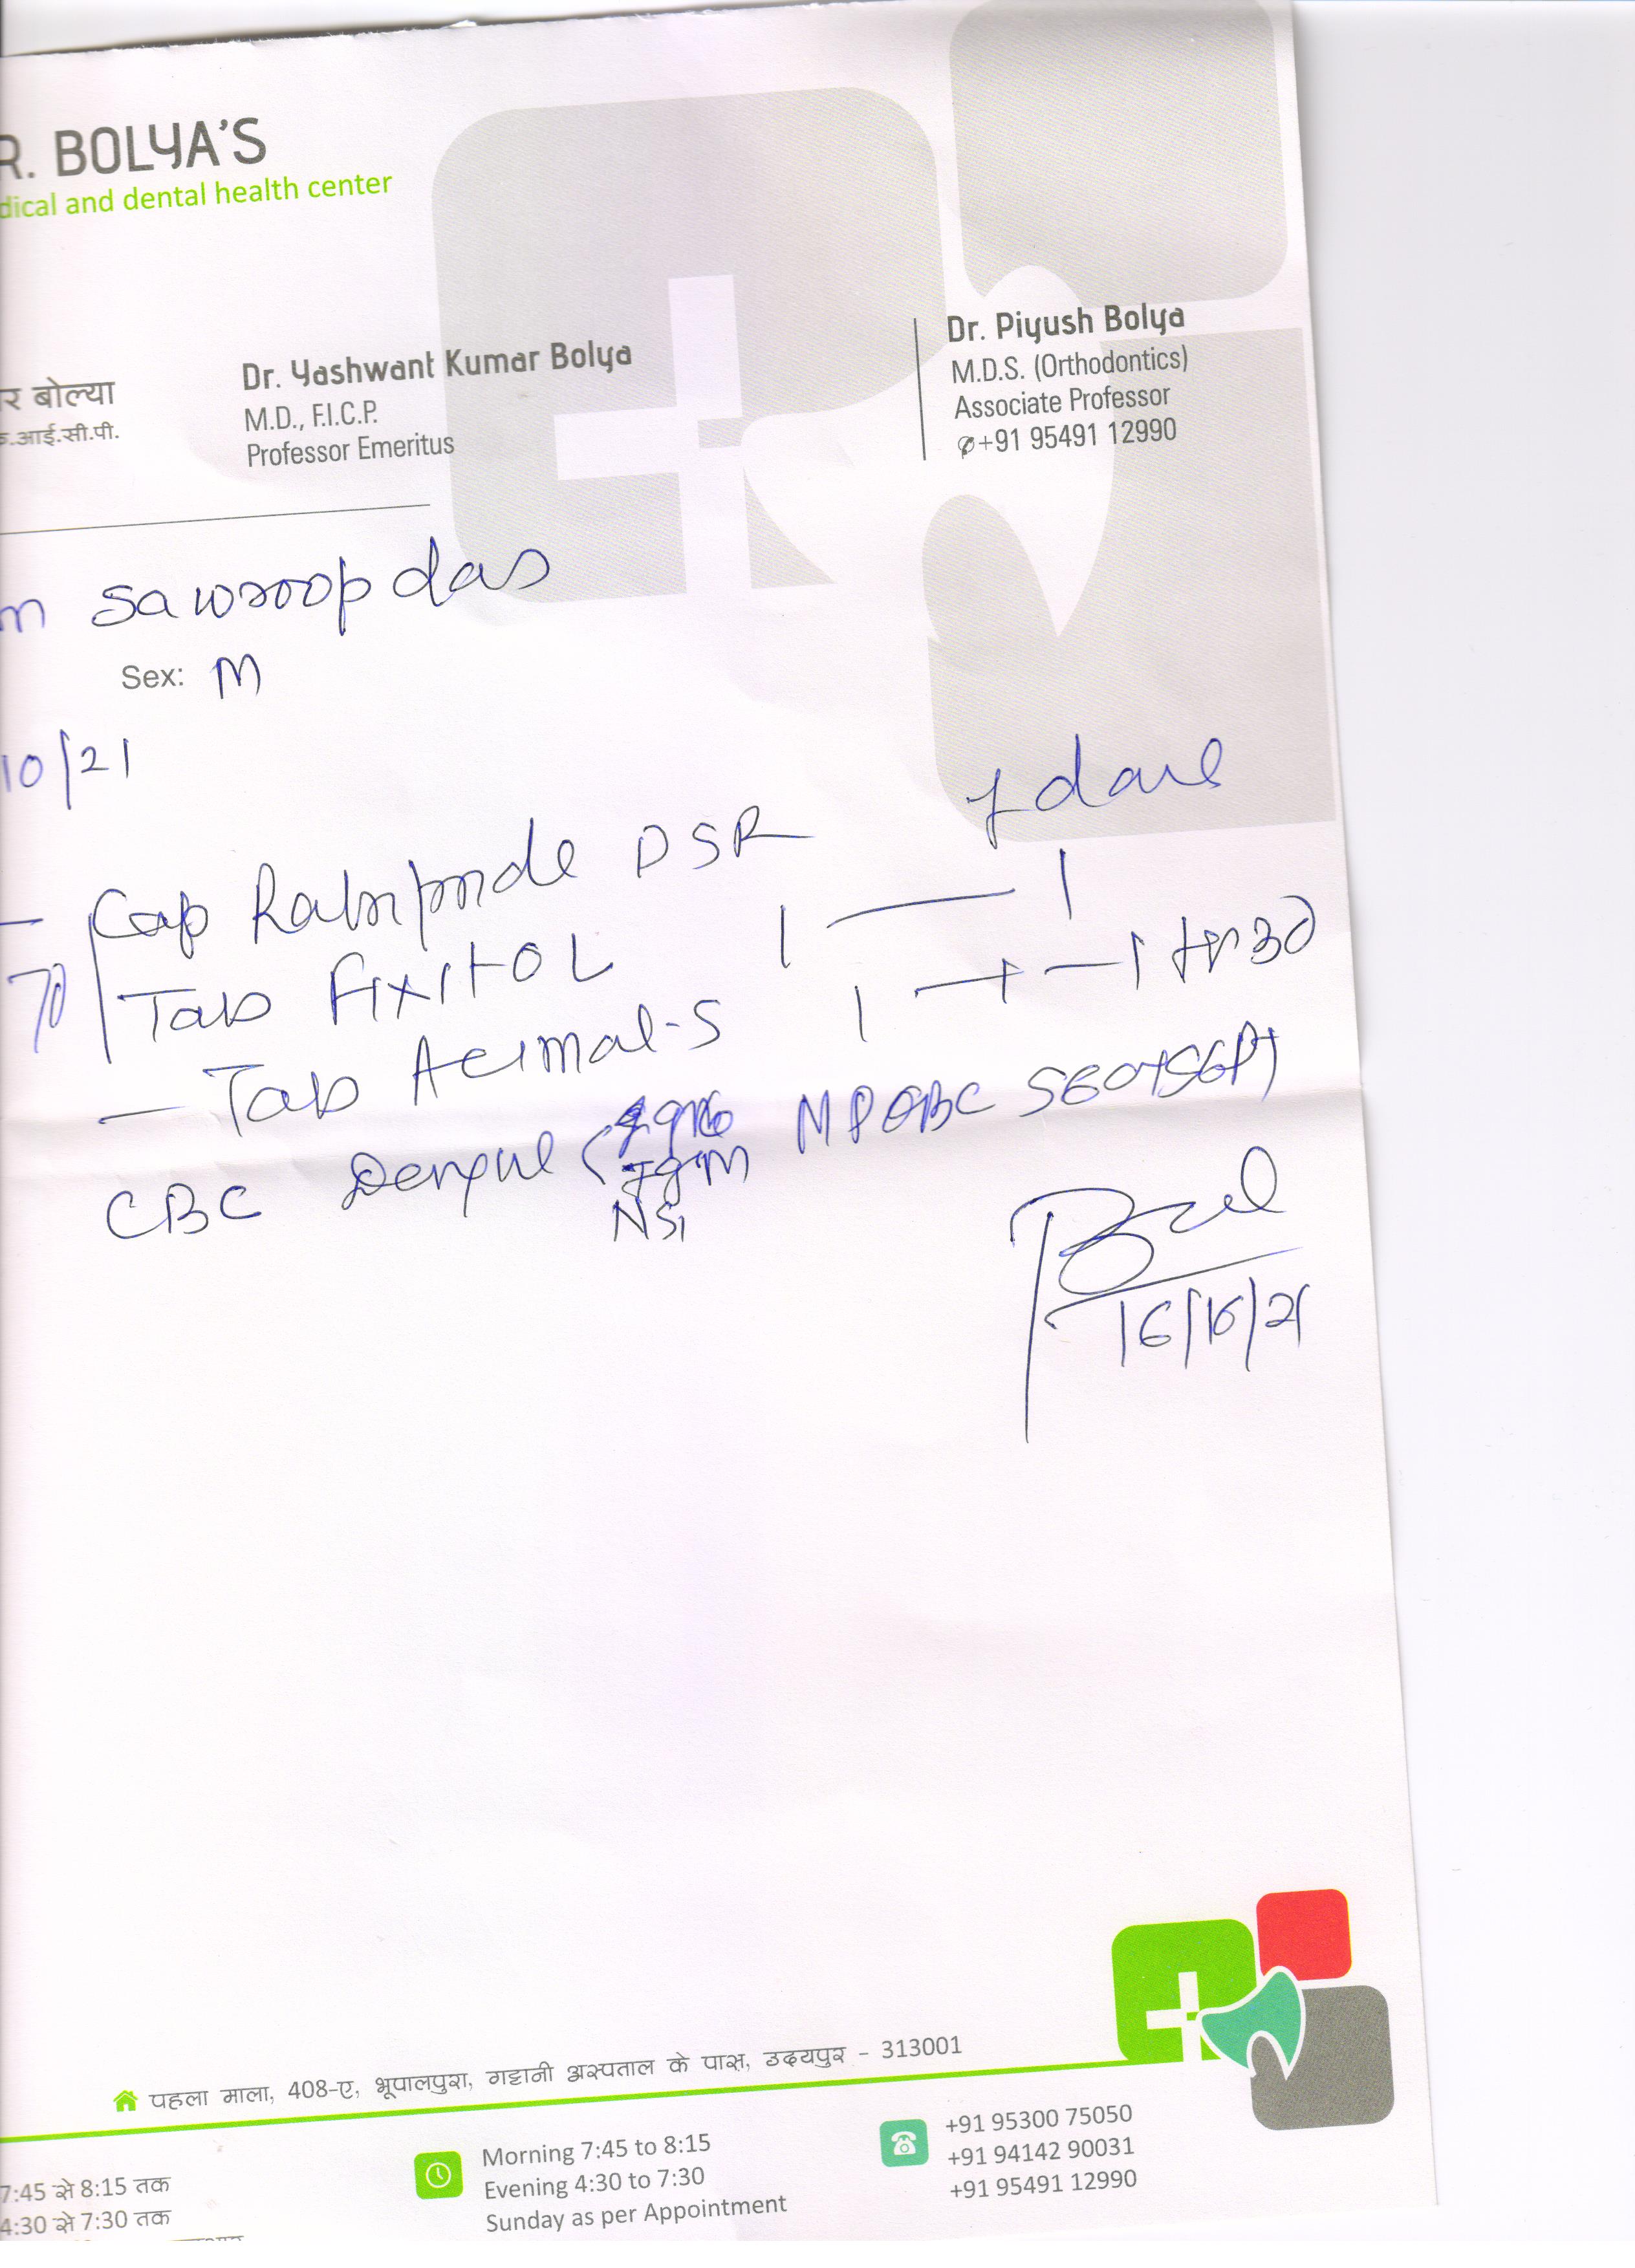 R. BOLYA'S
dical and dental health center
र बोल्या
.आई.सी.पी.
Dr. Yashwant Kumar Bolya
M.D., F.I.C.P.
Professor Emeritus
Dr. Piyush Bolya
M.D.S. (Orthodontics)
Associate Professor
+91 95491 12990
m Sawroop das
Sex: M
10/21
Cap DSR
70 Tab Fixitol 1 — 1
Tab
CBC Dengue ( IgM NS1 MP SGOT SGPT
16/10/21
पहला माला, 408-ए, भूपालपुरा, गट्टानी अस्पताल के पास, उदयपुर - 313001
7:45 से 8:15 तक
4:30 से 7:30 तक
Morning 7:45 to 8:15
Evening 4:30 to 7:30
Sunday as per Appointment
+91 95300 75050
+91 94142 90031
+91 95491 12990